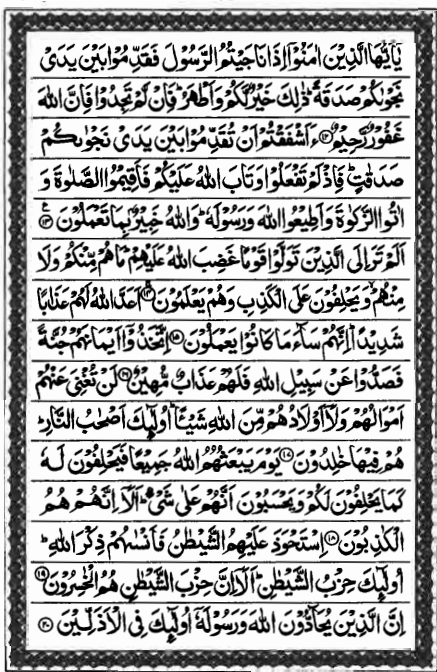 يٰۤاَيُّهَا الَّذِيْنَ اٰمَنُوْۤا اِذَا نَاجَيْتُمُ الرَّسُوْلَ فَقَدِّمُوْا بَيْنَ يَدَىْ
نَجْوٰىكُمْ صَدَقَةً ؕ ذٰلِكَ خَيْرٌ لَّكُمْ وَاَطْهَرُ ؕ فَاِنْ لَّمْ تَجِدُوْا فَاِنَّ اللّٰهَ
غَفُوْرٌ رَّحِيْمٌ ﴿۱۲﴾ ءَاَشْفَقْتُمْ اَنْ تُقَدِّمُوْا بَيْنَ يَدَىْ نَجْوٰىكُمْ
صَدَقٰتٍ ؕ فَاِذْ لَمْ تَفْعَلُوْا وَتَابَ اللّٰهُ عَلَيْكُمْ فَاَقِيْمُوا الصَّلٰوةَ وَ
اٰتُوا الزَّكٰوةَ وَاَطِيْعُوا اللّٰهَ وَرَسُوْلَهٗ ؕ وَاللّٰهُ خَبِيْرٌۢ بِمَا تَعْمَلُوْنَ ﴿۱۳﴾
اَلَمْ تَرَ اِلَى الَّذِيْنَ تَوَلَّوْا قَوْمًا غَضِبَ اللّٰهُ عَلَيْهِمْ ؕ مَا هُمْ مِّنْكُمْ وَلَا
مِنْهُمْ ۙ وَيَحْلِفُوْنَ عَلَى الْكَذِبِ وَهُمْ يَعْلَمُوْنَ ﴿۱۴﴾ اَعَدَّ اللّٰهُ لَهُمْ عَذَابًا
شَدِيْدًا ؕ اِنَّهُمْ سَآءَ مَا كَانُوْا يَعْمَلُوْنَ ﴿۱۵﴾ اِتَّخَذُوْۤا اَيْمَانَهُمْ جُنَّةً
فَصَدُّوْا عَنْ سَبِيْلِ اللّٰهِ فَلَهُمْ عَذَابٌ مُّهِيْنٌ ﴿۱۶﴾ لَنْ تُغْنِىَ عَنْهُمْ
اَمْوَالُهُمْ وَلَاۤ اَوْلَادُهُمْ مِّنَ اللّٰهِ شَيْئًا ؕ اُولٰٓئِكَ اَصْحٰبُ النَّارِ ؕ
هُمْ فِيْهَا خٰلِدُوْنَ ﴿۱۷﴾ يَوْمَ يَبْعَثُهُمُ اللّٰهُ جَمِيْعًا فَيَحْلِفُوْنَ لَهٗ
كَمَا يَحْلِفُوْنَ لَكُمْ وَيَحْسَبُوْنَ اَنَّهُمْ عَلٰى شَىْءٍ ؕ اَلَاۤ اِنَّهُمْ هُمُ
الْكٰذِبُوْنَ ﴿۱۸﴾ اِسْتَحْوَذَ عَلَيْهِمُ الشَّيْطٰنُ فَاَنْسٰىهُمْ ذِكْرَ اللّٰهِ ؕ
اُولٰٓئِكَ حِزْبُ الشَّيْطٰنِ ؕ اَلَاۤ اِنَّ حِزْبَ الشَّيْطٰنِ هُمُ الْخٰسِرُوْنَ ﴿۱۹﴾
اِنَّ الَّذِيْنَ يُحَآدُّوْنَ اللّٰهَ وَرَسُوْلَهٗۤ اُولٰٓئِكَ فِى الْاَذَلِّيْنَ ﴿۲۰﴾